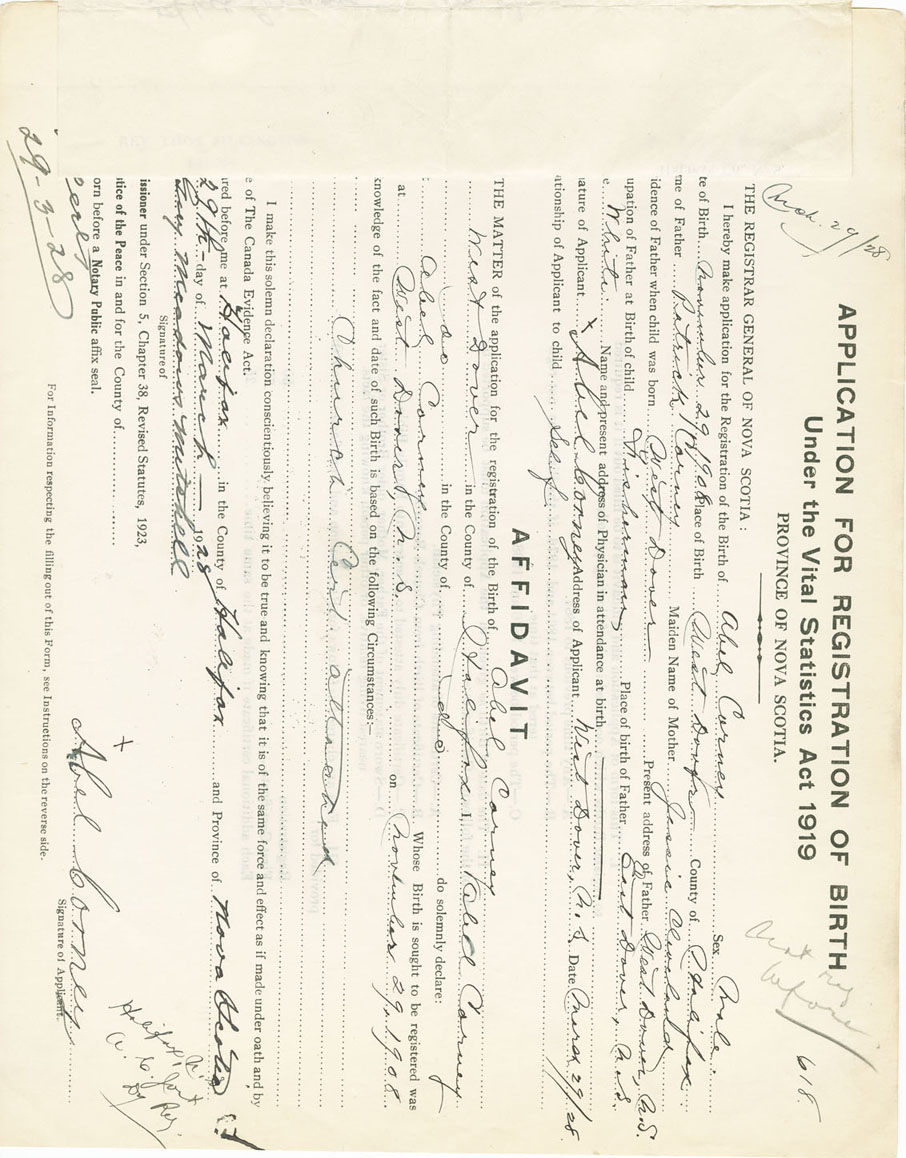 Mch 29/28
618
APPLICATION FOR REGISTRATION OF BIRTH
Not Reg
before
Under the Vital Statistics Act 1919
PROVINCE OF NOVA SCOTIA.
THE REGISTRAR GENERAL OF NOVA SCOTIA:
I hereby make application for the Registration of the Birth of Abel Corney Sex Male
te of Birth November 29th 1908 Place of Birth West Dover County of Halifax
me of Father Patrick Corney Maiden Name of Mother Jessie Cleveland
idence of Father when child was born West Dover Present address of Father West Dover, N.S.
upation of Father at Birth of child Fisherman Place of birth of Father East Dover, N.S.
e. White Name and present address of Physician in attendance at birth
ature of Applicant x Abel Corney Address of Applicant West Dover, N.S. Date March 29/28
ationship of Applicant to child Self
AFFIDAVIT
THE MATTER of the application for the registration of the Birth of Abel Corney
West Dover in the County of Halifax I, Abel Corney
do in the County of do do solemnly declare:
Abel Corney Whose Birth is sought to be registered was
at West Dover, N.S. on November 29, 1908
knowledge of the fact and date of such Birth is based on the following Circumstances:—
Church Cert. attached
I make this solemn declaration conscientiously believing it to be true and knowing that it is of the same force and effect as if made under oath and by
e of The Canada Evidence Act.
red before me at Halifax in the County of Halifax and Province of Nova Scotia
29th day of March 1928
Meadows Mitchell
Signature of
issioner under Section 5, Chapter 38, Revised Statutes, 1923,
tice of the Peace in and for the County of
orn before a Notary Public affix seal.
x Abel Corney
Signature of Applicant.
Dy Reg.
For Information respecting the filling out of this Form, see Instructions on the reverse side.
29-3-28